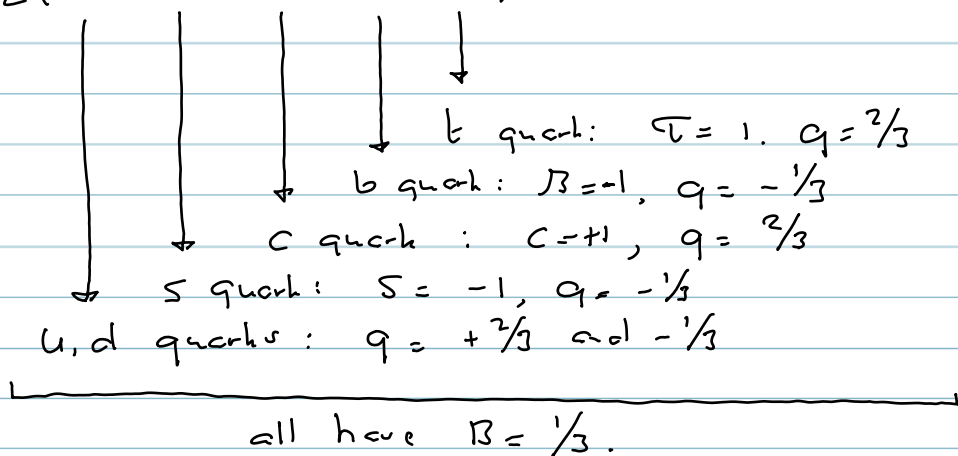 t quark: T = 1. q = 2/3
b quark: B = -1, q = - 1/3
c quark : C = +1, q = 2/3
s quark: S = -1, q = - 1/3
u, d quarks : q = + 2/3 and - 1/3
all have B = 1/3.